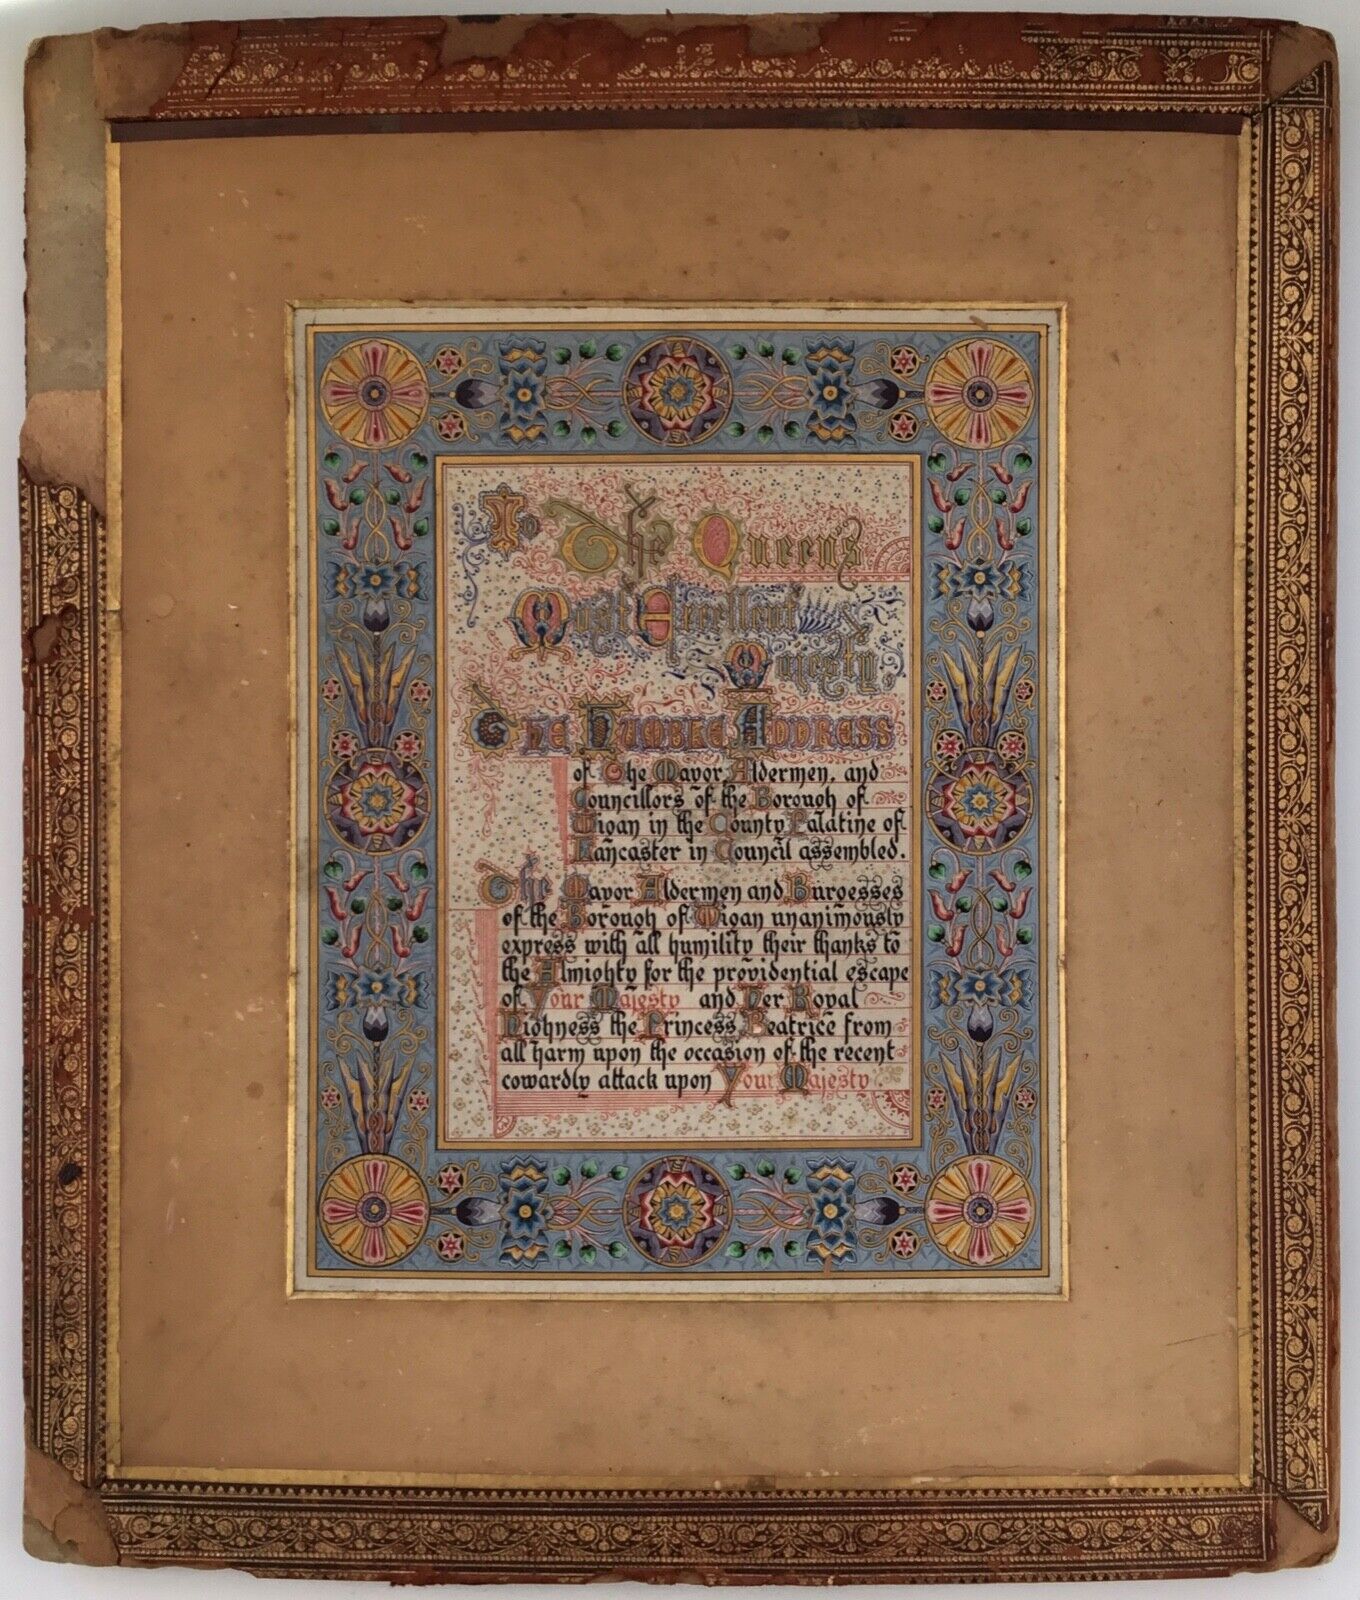 To The Queen's
Most Excellent
Majesty.
The Humble Address
of The Mayor Aldermen, and
Councillors of the Borough of
Wigan in the County Palatine of
Lancaster in Council assembled.
The Mayor Aldermen and Burgesses
of the Borough of Wigan unanimously
express with all humility their thanks to
the Almighty for the providential escape
of Your Majesty and Her Royal
Highness the Princess Beatrice from
all harm upon the occasion of the recent
cowardly attack upon Your Majesty